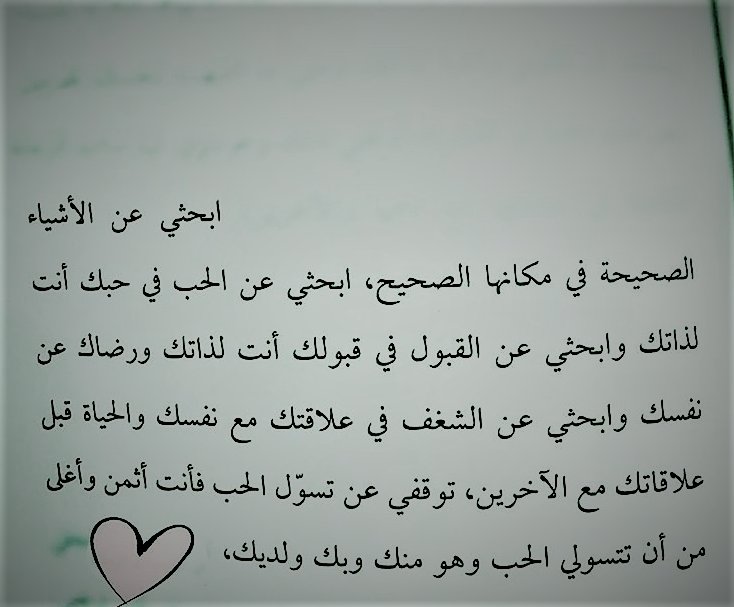 ابحثي عن الأشياء
الصحيحة في مكانها الصحيح، ابحثي عن الحب في حبك أنت
لذاتك وابحثي عن القبول في قبولك أنت لذاتك ورضاك عن
نفسك وابحثي عن الشغف في علاقتك مع نفسك والحياة قبل
علاقاتك مع الآخرين، توقفي عن تسوّل الحب فأنت أثمن وأغلى
من أن تتسولي الحب وهو منك وبك ولديك،